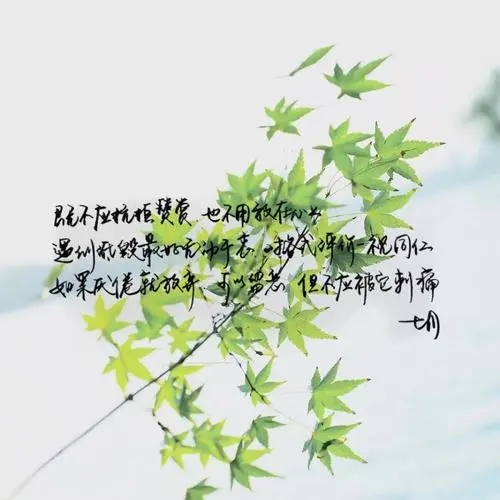 既不应抗拒赞赏 也不用放在心上
遇到诋毁最好无动于衷 评价一视同仁
如果 倦就放弃、可以留 但不应被它刺痛
七月